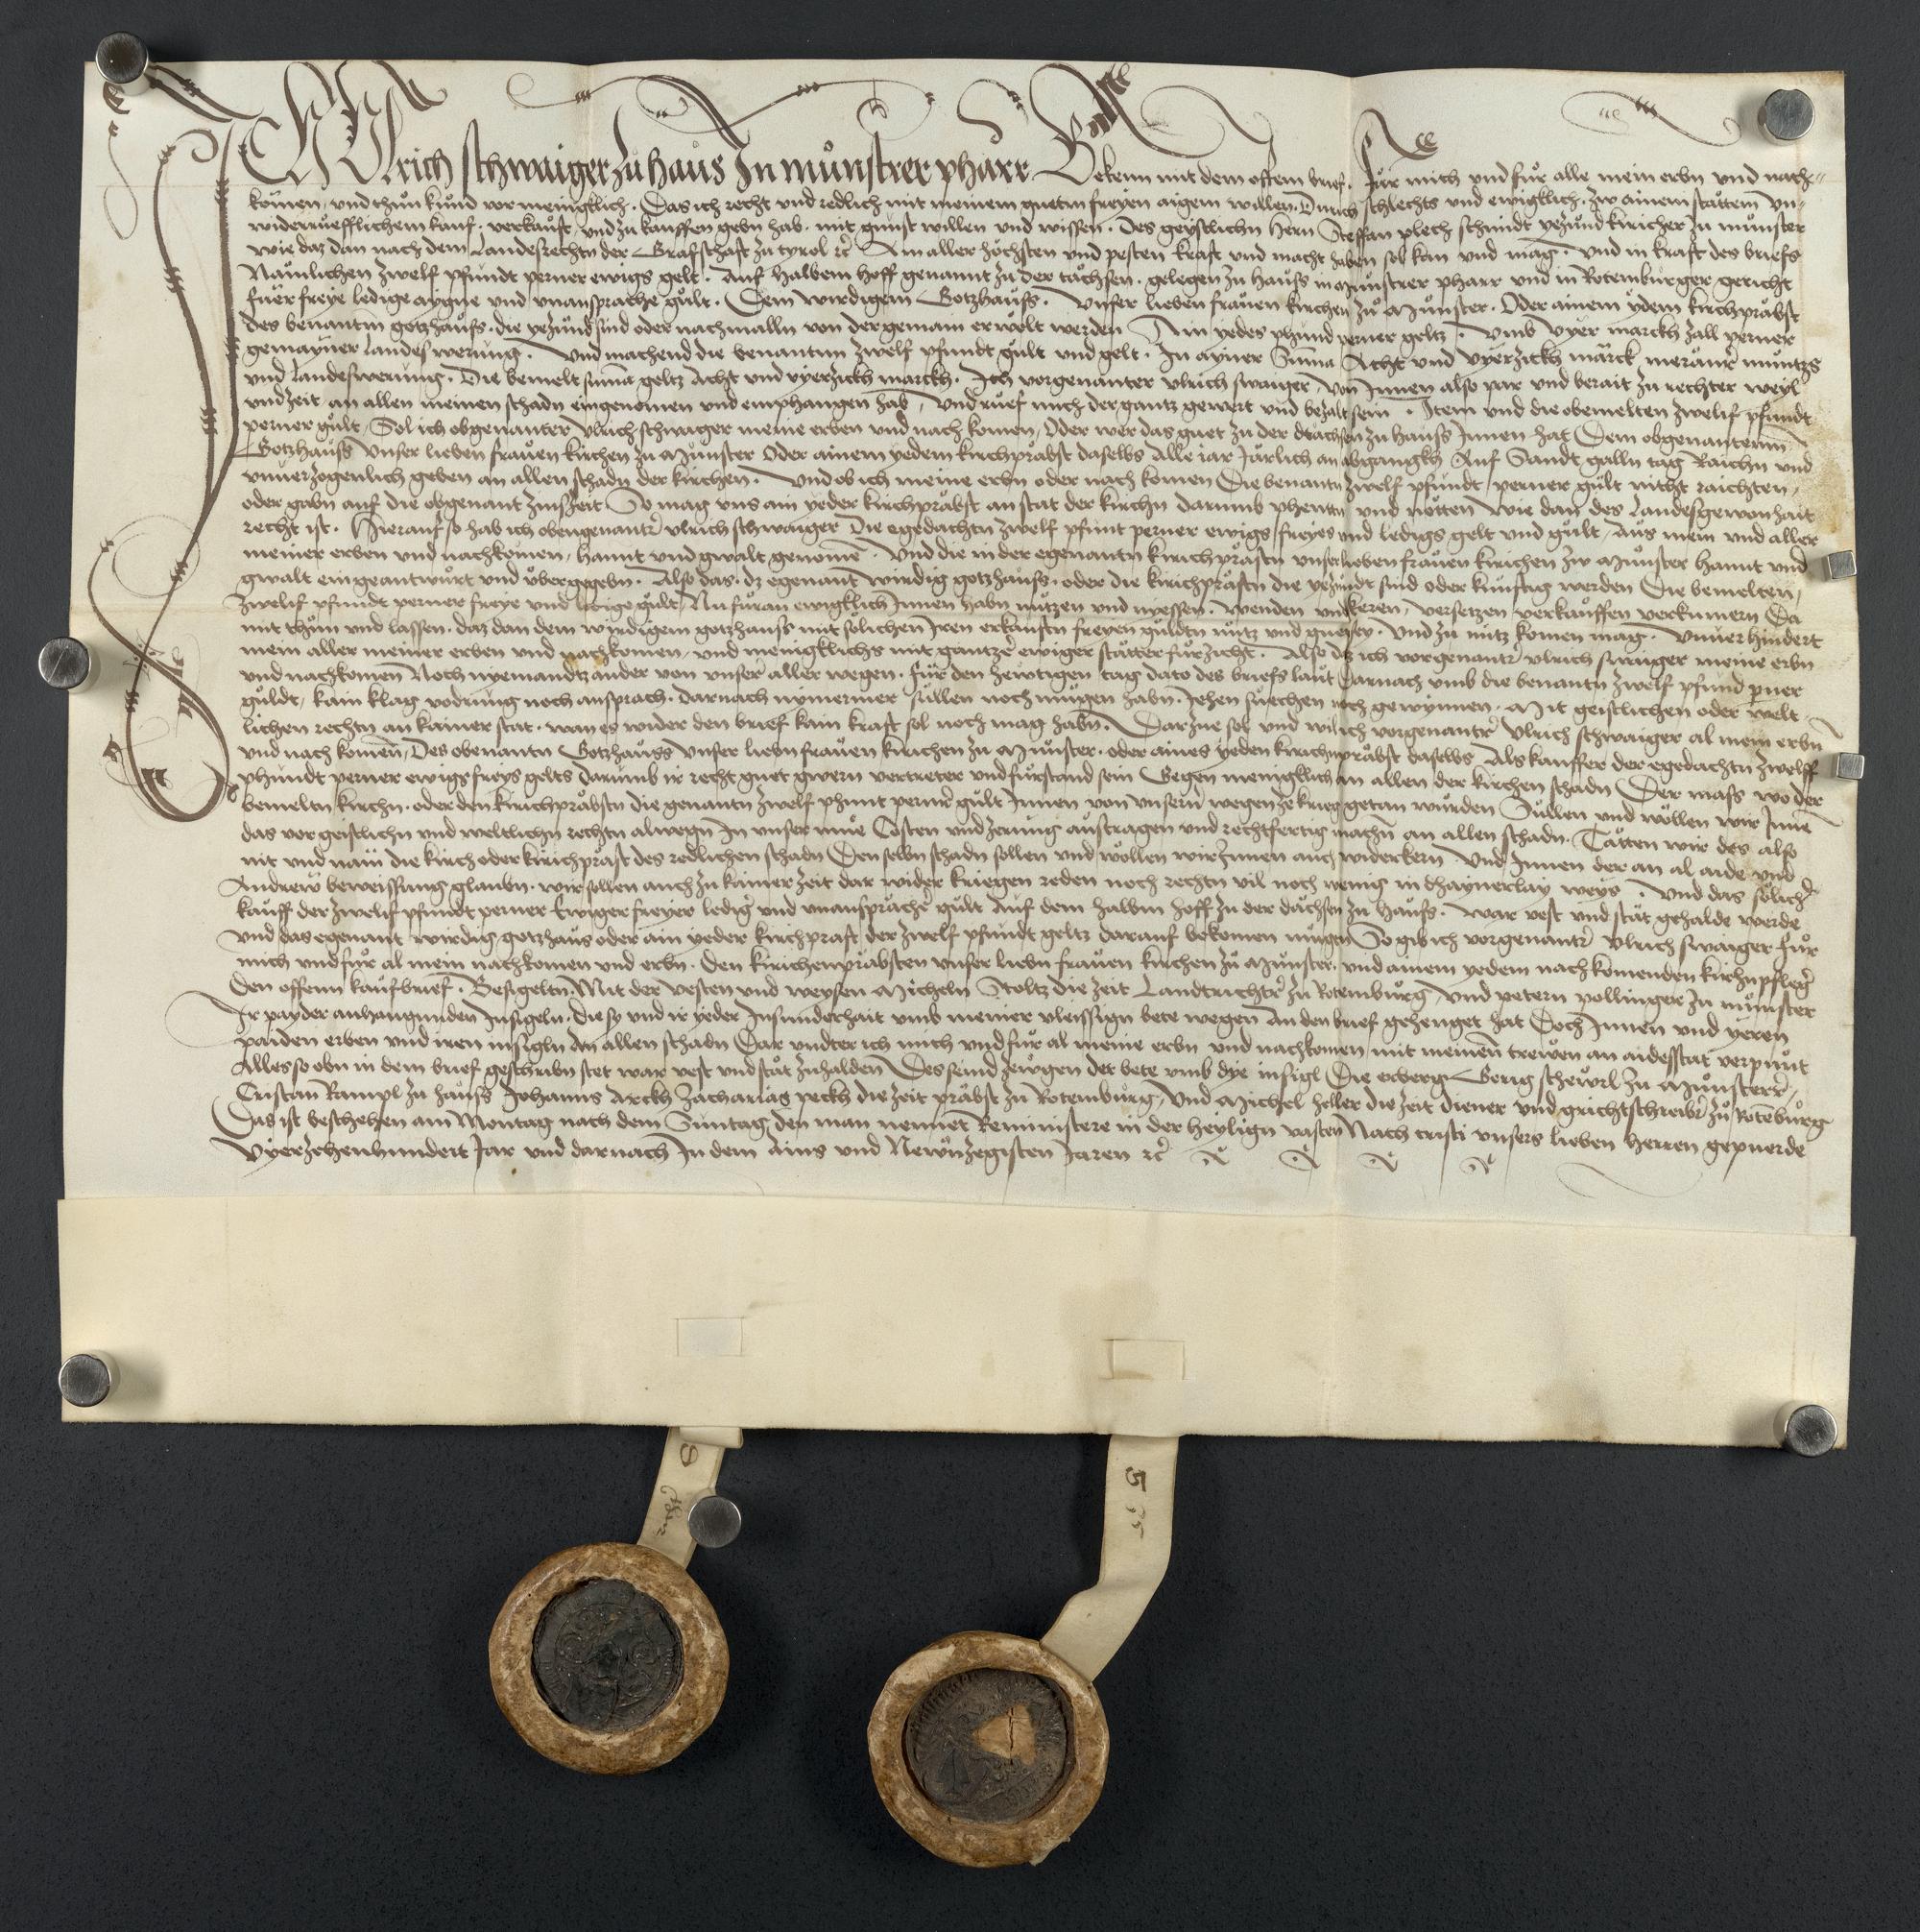 ICh Ulrich schwaiger zu haus In munstrer pharr Bekenn mit dem offem brief. Fur mich und fur alle mein erbn und nach
komen, und thun kund vor menigklich. Das ich recht und redlich mit meinem guetm freyen aigem willen. Durch schlechts und ewigklich. zw ainem stattem un
widerruefflichem kauf. verkauft, und zu kauffen gebn hab. mit gunst willen und wissen. Des geystlichn hern Steffan plech schmidt yezund kiricher zu munster
wie daz dan nach dem Landesrechtn der Grafschaft zu tyrol rc Am aller hochsten und pesten kraft und macht haben sol kan und mag. und in kraft des briefs
Namlichen zwelf pfundt perner ewigs gelt. Auf halbem hoff genannt zu der tachsen. gelegen zu hauss in munstrer pharr und in Rotemburger gericht
fuer freye ledige aygne und unansprache gult. Dem wirdigem Gotzhauss. unser lieben frauen kirchen zu Munster. Oder ainem ydem kirchprabst
des benantm gotzhauss. die yezund sind oder nachmalln von der gemain erwolt werden Am yedes phund perner geltz. umb vyer marckh zall perner
gemayner landes werung. und machend die benantnn zwelf pfundt gult und gelt. In ayner Suma Acht und vyerzickh marck meranr muntzs
und Landeswerung. Die bemelt suma geltz Acht und vyerzickh marckh. Ich vorgenanter ulrich swaiger, von Innen also par und berait zu rechter weyl
und zeit an allen meinen schadn eingenomen und emphangen hab, und ruef mich der gantz gewert und bezalt sein. Item und die obemelten zwelif pfundt
perner gult, Sol ich obgenanter ulrich schwaiger meine erben und nach komen, Oder wer das guet zu der dtachsen zu hauss Innen hat Dem obgenantenn
Gotzhauss unser lieben frauen kirchen zu Munster Oder ainem yedem kirchprabst daselbs Alle iar Jarlich an abgangkh Auf Sandt galln tag Raichn und
unverzogenlich geben an allen schadn der kirchen. und ob ich meine erbn oder nach komen Die benantn zwelf pfundt, perner gult nicht raichten,
oder gabn auf die obgenant zinszeit So mag uns ain yeder kirchprabst an stat der kirchn darumb phentn und notten wie dan des Landesgewonhait
recht ist. Hierauf so hab ich obengenantr ulrich schwaiger Die egedachtn zwelf pfunt perner ewigs freyes und ledigs gelt und gult, Aus mein und aller
meiner erben und nachkomen, hannt und gwalt genome. und die in der egenantn kirichprastn unser lieben frauen kirichen zw Munster hannt und
gwalt eingeantwurt und ubergegebn. Also das. dz egenant wirdig gotzhauss. oder die kirichprastn die yezundt sind oder kunftig werden Die bemelten,
zwelif pfundt perner freye und ledige gult, Nu furan ewigklich Innen habn nutzen und nyessen. wenden und keren, versetzen verkauffen verkumern Da
mit thun und lassen. daz dan dem wirdigem gotzhauss mit solichen Iren erkauftn freyen guldtn nutz und guet sey. und zu nutz komen mag. unverhindert
mein aller meiner erben und nachkomen, und menigklichs mit gantze ewiger statter furzicht. Also dz ich vorgenantr ulrich swaiger meine erbn
und nachkomen Noch nyemandtz ander von unser aller wegen. fur den hewtigen tag dato des briefs laut Darnach umb die benantn zwelf pfund pner
guldt, kain klag vodrung noch ansprach. darnach nymermer sullen noch mugen habn. Jehen suechen noch gewynnen. Mit geistlichen oder welt
lichen rechtn an kainer stat. wan es wider den brief kain kraft sol noch mag habn. Darzue sol und wil ich vorgenantr ulrich schwaiger al mein erbn
und nach komen, Des obenantn Gotzhauss unser liebn frauen kirchen zu Munster. oder aines yeden kirichnprabst daselbs Als kauffer der egedachtn zwelff
phundt perner ewigs freys gelts darumb ir recht guet gwern vertreter und furstand sein Gegen menigklich an allen der kirchen schadn Der mass wo der
bemeltn kirchn. oder den kirichprabstn die genantn zwelf phunt pernr gult Innen von unsern wegen ze krieg getan wurden Sullen und wollen wir Inne
das vor geistlichn und weltlichn rechtn alwegn In unser mue Costen und zerung austragen und rechtfertig machn an allen schadn. Tatten wir des also
nit und nam die kirch oder kirichprast des redlichen schadn Den selbn schadn sollen und wollen wir Innen auch widerkern und Innen der an al aide und
Andrew beweissung glaubn. wir sollen auch zu kainer zeit dar wider kriegen reden noch rechtn vil noch wenig in dhaynerlay weys. und das solichr
kauff der zwelif pfundt perner Ewiger freyer ledigr und unansprachr gult Auf dem halbm hoff zu der dachsen zu hauss. war vest und stat gehalde werde
und das egenant wirdig gotzhaus oder ain yeder kirchprast der zwelf pfundt geltz darauf bekomen mugen So gib ich vorgenantr ulrich swaiger fur
mich und fur al mein nachkomen und erbn. Den kirichenprabsten unser liebn frauen kirchen zu Munster. und ainem yedem nachkomenden kirchnpflegr
Den offenn kaufbrief. Besigeltn. Mit der vesten und weysen Micheln Stoltz die zeit Landtrichtr zu Rotemburg, und petern pollinger zu munster
Ir payder anhangunden Insigeln. die sy und ir yeder Insunderhait umb meiner vleissign bete wegen An den brief gehenget hat Doch Innen und yeren
paiden erben und iren insigln An allen schadn Dar undter ich mich und fur al meine erbn und nachkomen, mit meinen trewen an aidesstat verpunt
Alles so obn in dem brief geschribn stet war vest und stat zu halden Des seind zewgen der bete umb dye insigl Die erberg Gerig schewrl zu Munsterr,
Cristan Rampl zu hauss Johanns Arckh Zacharias peckh die zeit prabst zu Rotemburg, und Michel heller die zeit diener und grichtschreibr zu Roteburg
Das ist beschehen am Montag nach dem Suntag den man nennet Reministere in der heylign vasten Nach cristi unsers lieben herren gepuerde
Vyerzehenhundert Jar und darnach In dem Ains und Newnzegisten Jaren rc